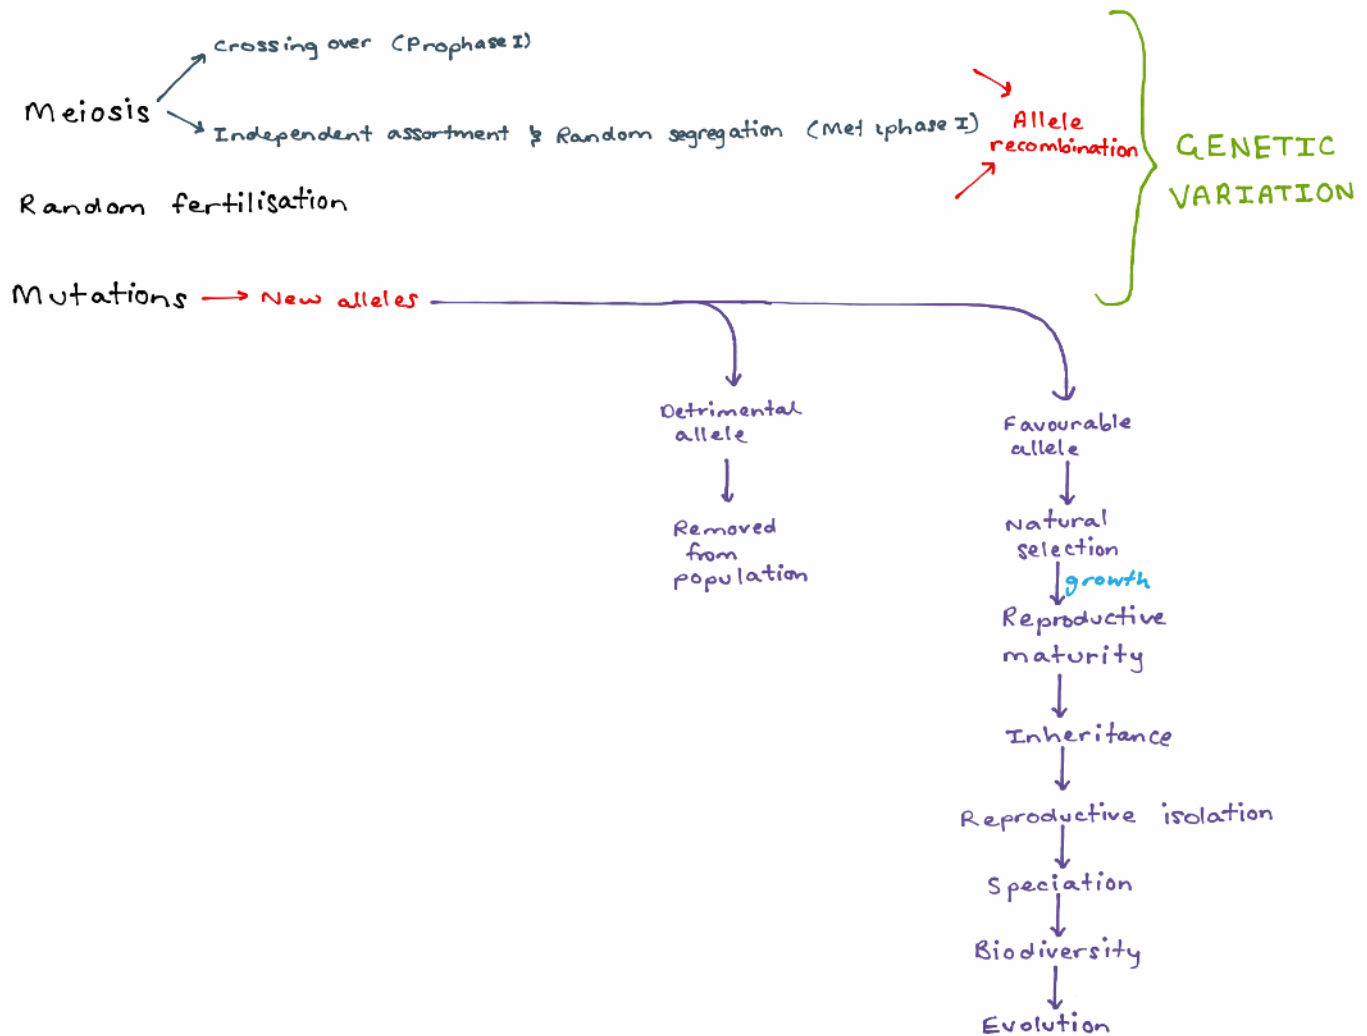 Crossing over (Prophase I)
Meiosis
Independent assortment & Random segregation (Metaphase I)
Allele
recombination
GENETIC
VARIATION
Random fertilisation
Mutations → New alleles
Detrimental
allele
Removed
from
population
Favourable
allele
Natural
selection
growth
Reproductive
maturity
Inheritance
Reproductive isolation
Speciation
Biodiversity
Evolution